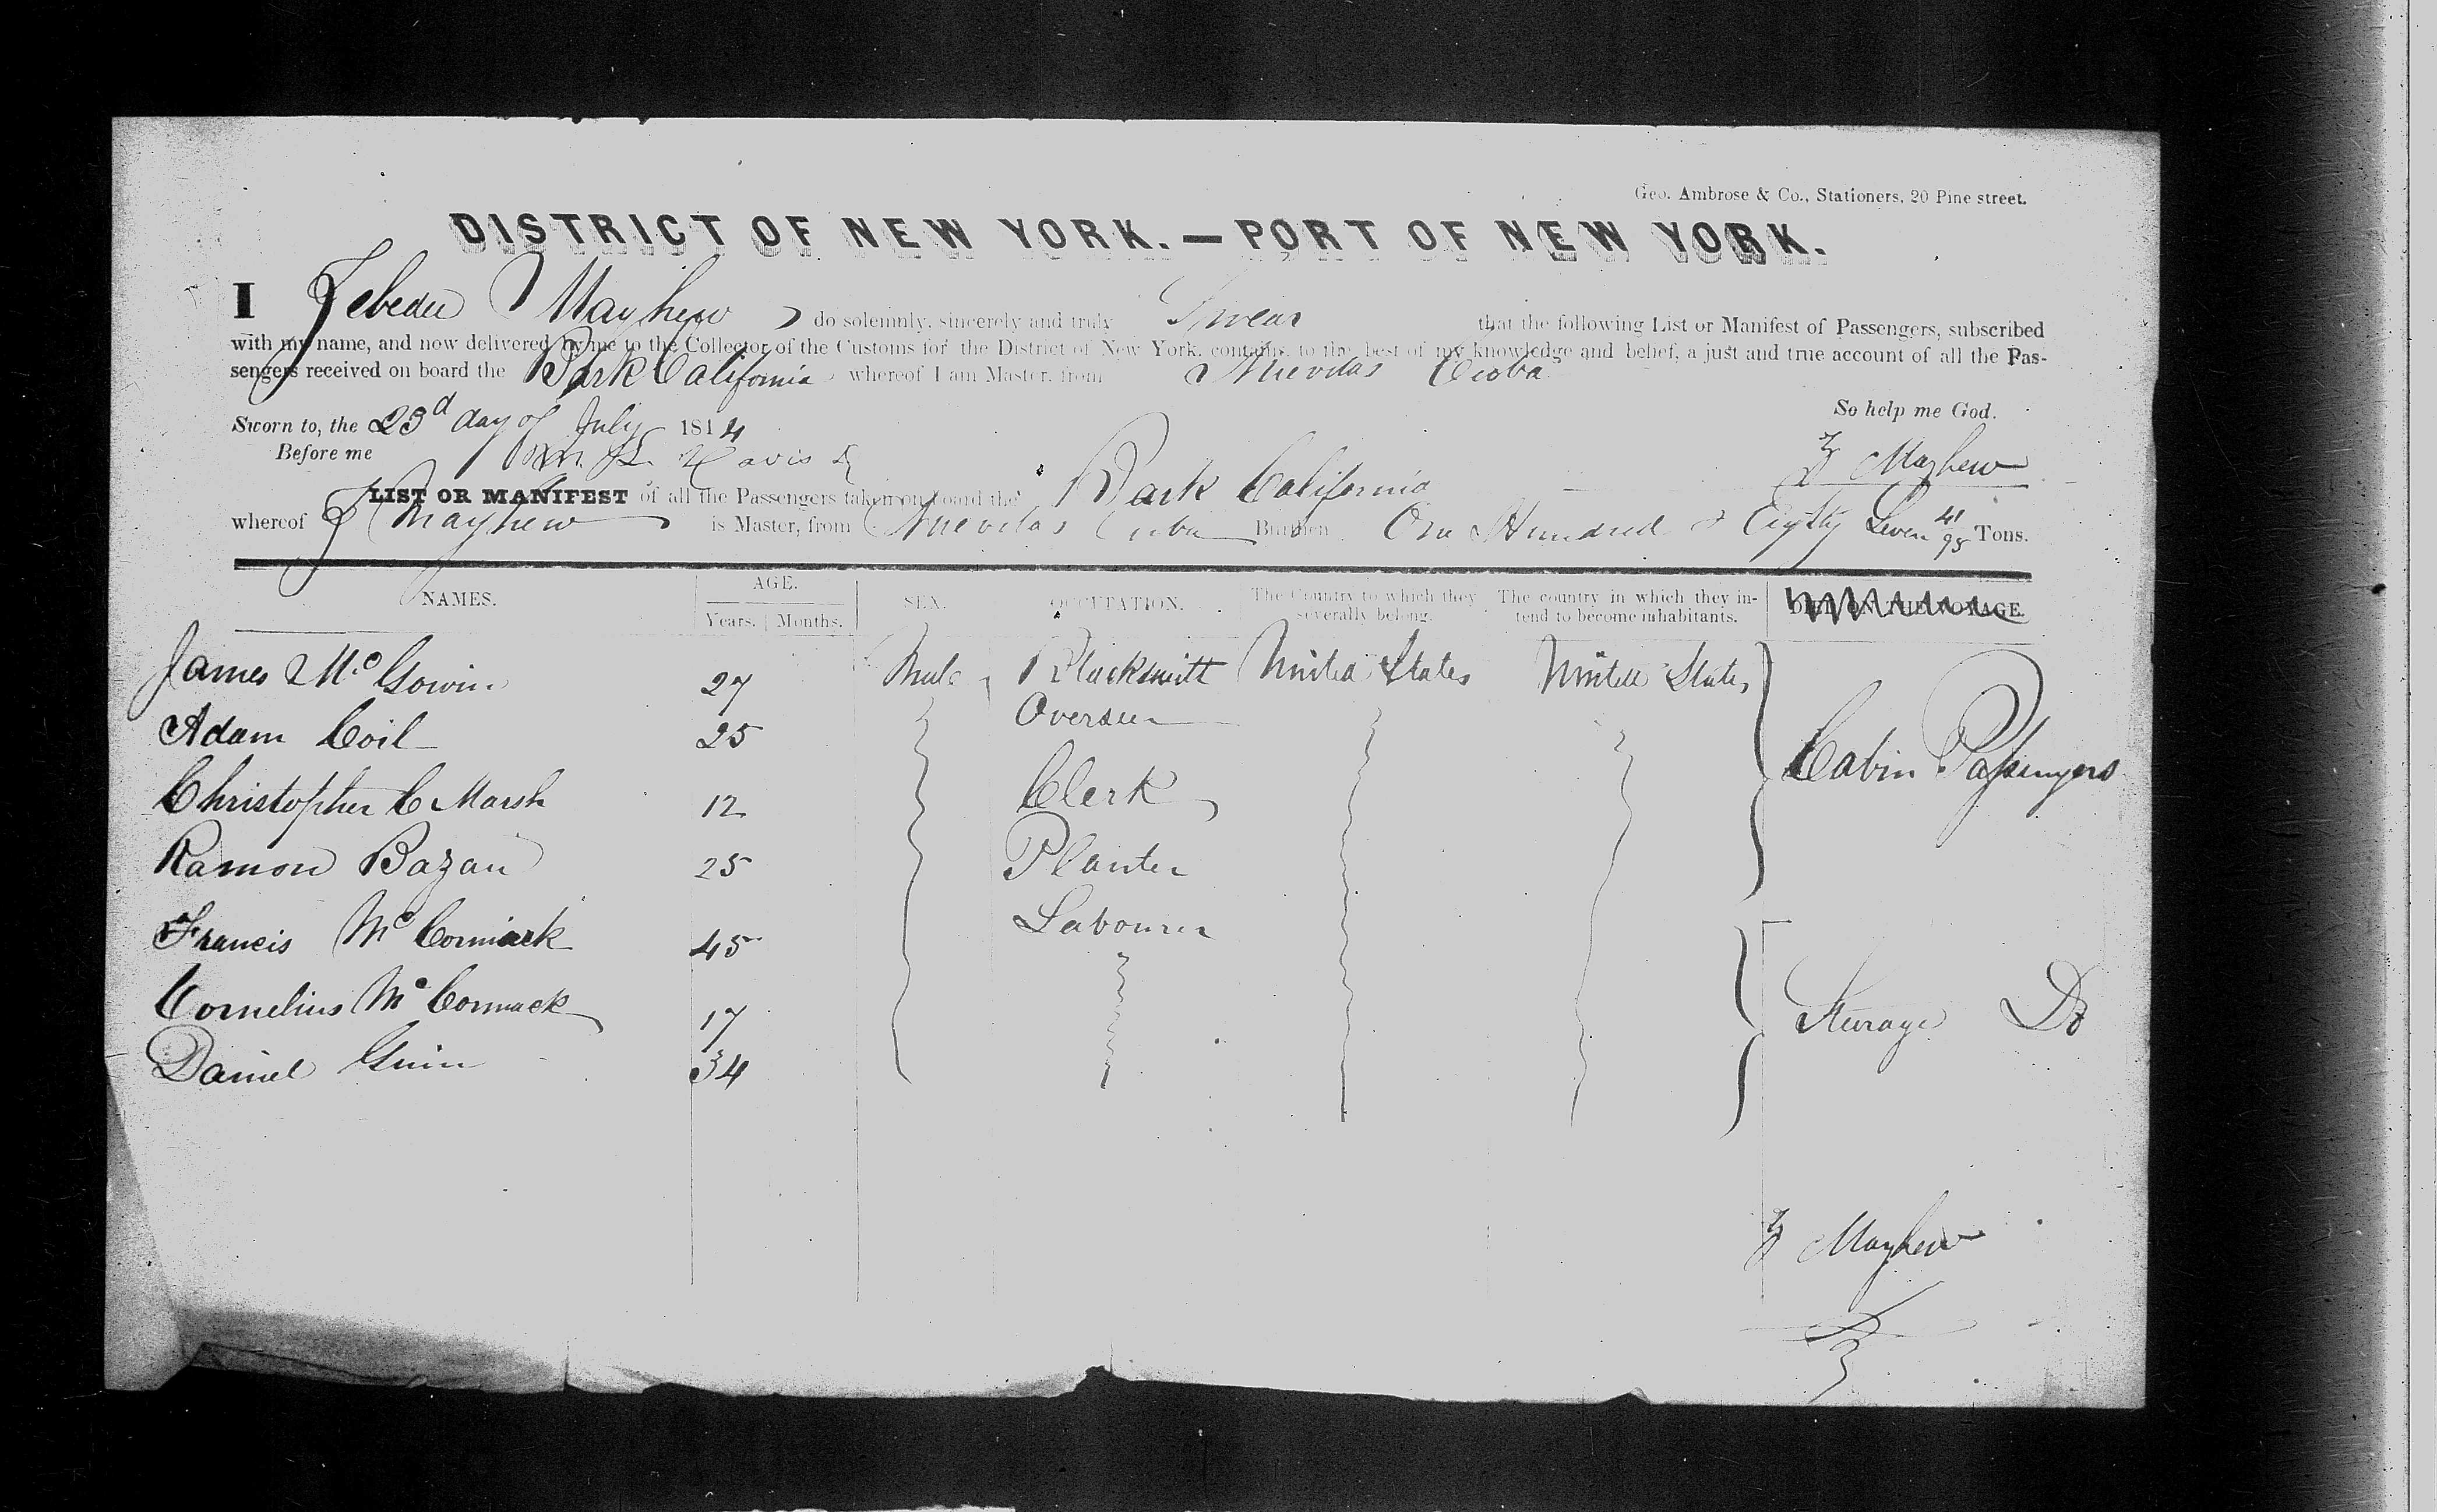 Geo. Ambrose & Co., Stationers, 20 Pine street.
DISTRICT OF NEW YORK.—PORT OF NEW YORK.
I Zebedee Mayhew do solemnly, sincerely and truly Swear that the following List or Manifest of Passengers, subscribed
with my name, and now delivered by me to the Collector of the Customs for the District of New York, contains, to the best of my knowledge and belief, a just and true account of all the Pas-
sengers received on board the Bark California whereof I am Master, from Nuevitas Cuba
So help me God.
Sworn to, the 23d day of July 1844
Z Mayhew
Before me Davis
LIST OR MANIFEST of all the Passengers taken on board the Bark California
whereof Z Mayhew is Master, from Nuevitas Cuba Burthen One Hundred & Eighty Seven 41/95 Tons.
NAMES. AGE. SEX. OCCUPATION. The Country to which they severally belong. The country in which they in-tend to become inhabitants. DIED ON THE VOYAGE.
Years. Months.
James Mc Gowin 27 Male Blacksmith United States United States
Adam Coil 25 Overseer
Christopher C Marsh 12 Clerk Cabin Passengers
Ramon Bazan 25 Planter
Francis Mc Cormack 45 Labourer
Cornelius Mc Cormack 17 Steerage Do
Daniel Guin 34
Z Mayhew